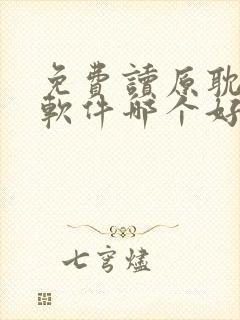 免費讀原耽
軟件哪个好
七穹燼